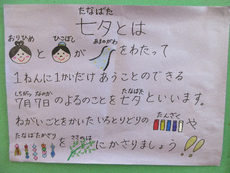 たなばた
七夕とは
おりひめ ひこぼし あまのがわ
と が をわたって
1ねんに1かいだけあうことのできる
しちがつ なのか たなばた
7月7日のよるのことを七夕といいます。
たんざく
ねがいごとをかいたいろとりどりの や
たなばたかざり ささのは
を にかざりましょう!!